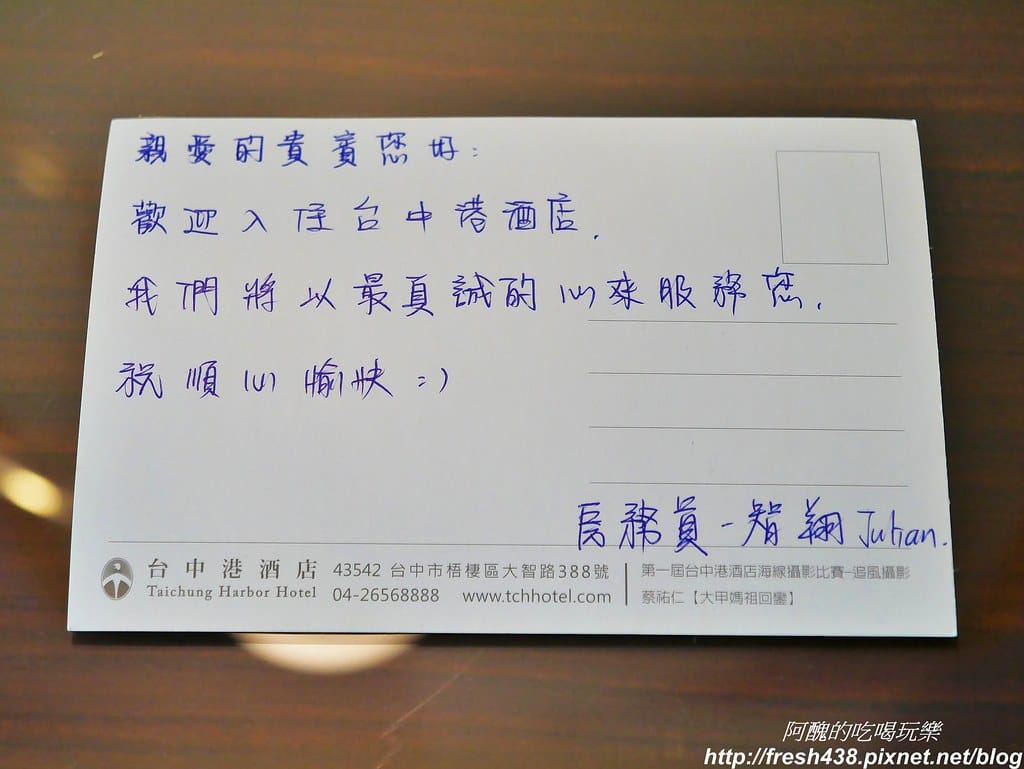 親愛的貴賓您好:
歡迎入住台中港酒店.
我們將以最真誠的心來服務您.
祝順心愉快 :)
房務員-智翔 Julian.
台中港酒店
Taichung Harbor Hotel
43542 台中市梧棲區大智路388號
04-26568888 www.tchhotel.com
第一屆台中港酒店海線攝影比賽-追風攝影
蔡祐仁【大甲媽祖回鑾】
阿醜的吃喝玩樂
http://fresh438.pixnet.net/blog